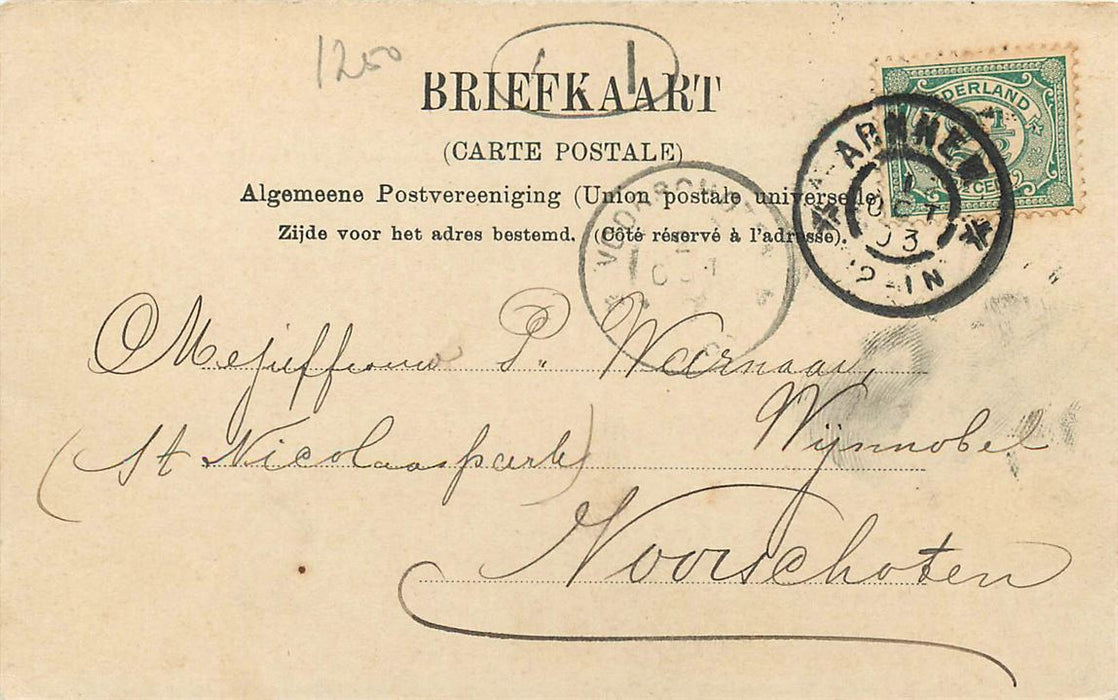 1250
BRIEFKAART
(CARTE POSTALE)
Algemeene Postvereeniging (Union postale universelle)
Zijde voor het adres bestemd. (Côté réservé à l'adresse).
NEDERLAND
ARNHEM
1
OCT
03
VOORSCHOTEN
OCT
Mejuffrouw P. Weernaar,
(St Nicolaaspark) Wijnnobel
Voorschoten